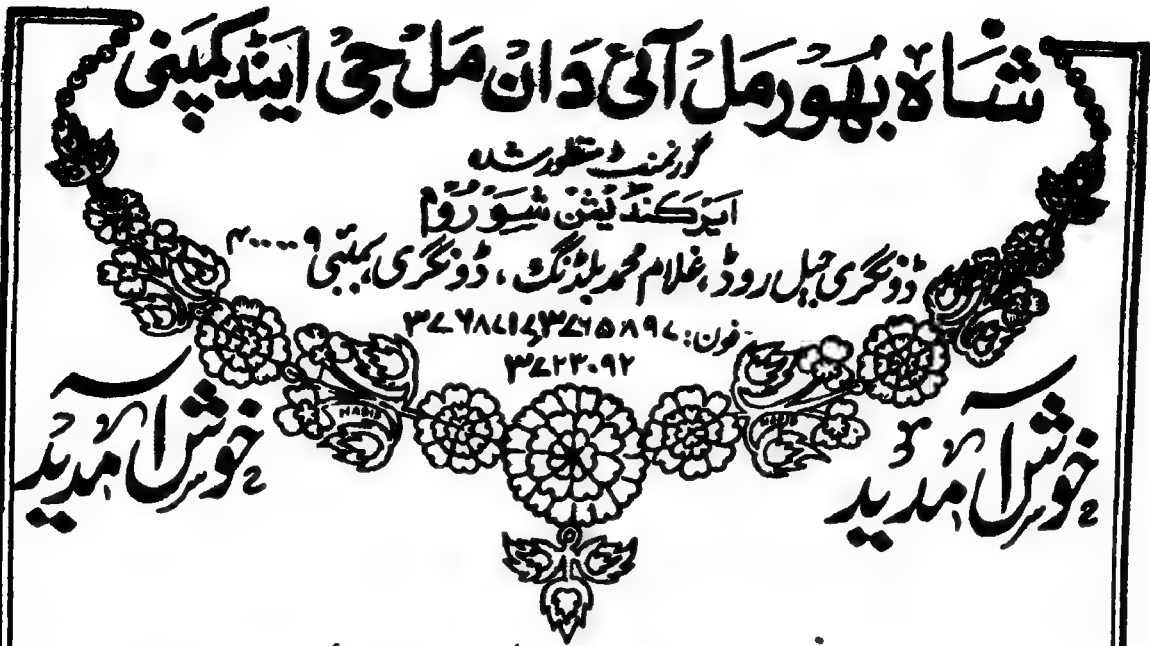 شاہ بھورمل آئی دان مل جی اینڈ کمپنی
گورنمنٹ منظور شدہ
ایرکنڈیشن شوروم
ڈونگری جیل روڈ، غلام محمد بلڈنگ، ڈونگری بمبئی ۴۰۰۰۰۹
فون: ۳۷۶۵۸۹۷، ۳۷۶۷۸۷۱
۳۷۲۳۰۹۲
خوش آمدید
خوش آمدید
HABIB
HABIB